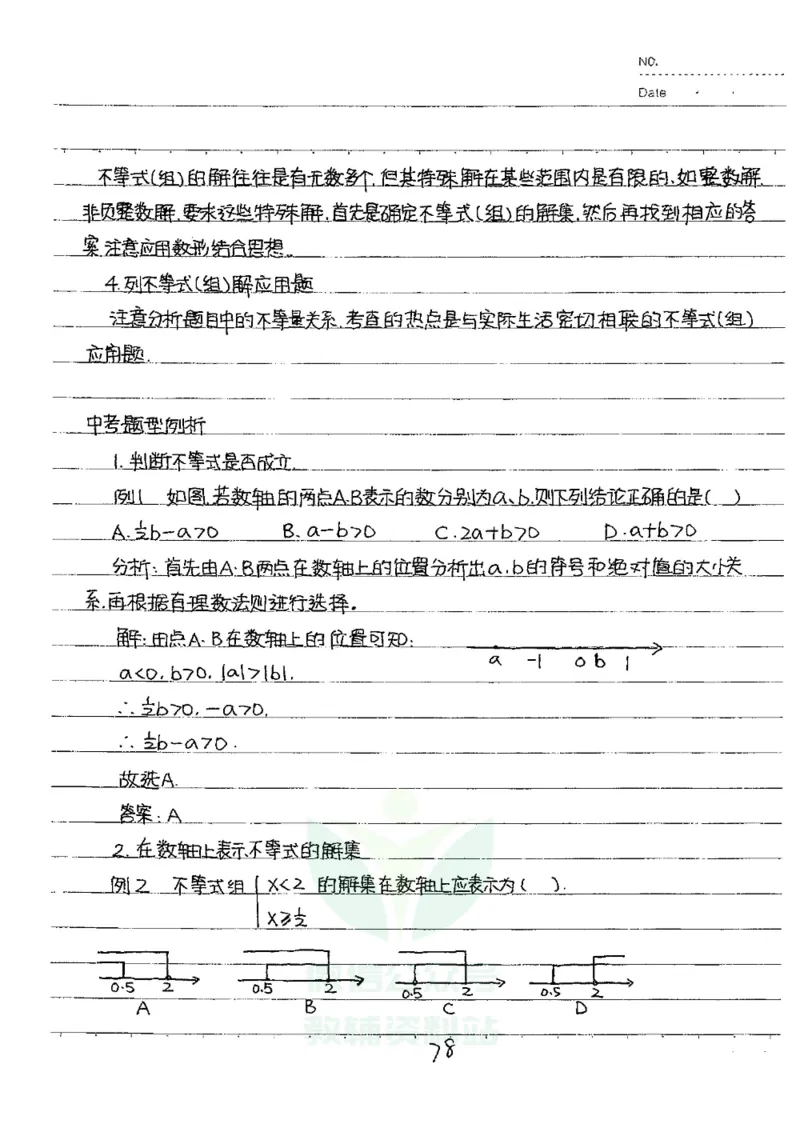 NO.
Date
不等式(组)的解往往是有无数多个,但其特殊解在某些范围内是有限的,如整数解,
非负整数解,要求这些特殊解,首先是确定不等式(组)的解集,然后再找到相应的答
案.注意应用数形结合思想.
4.列不等式(组)解应用题
注意分析题目中的不等量关系,考查的热点是与实际生活密切相联的不等式(组)
应用题.
中考题型例析
1.判断不等式是否成立
例1 如图,若数轴的两点A.B表示的数分别为a、b,则下列结论正确的是( )
A.½b-a>0 B.a-b>0 C.2a+b>0 D.a+b>0
分析:首先由A·B两点在数轴上的位置分析出a,b的符号和绝对值的大小关
系,再根据有理数法则进行选择.
解:由点A·B在数轴上的位置可知:
a -1 0 b 1
a<0,b>0,|a|>|b|,
∴½b>0,-a>0,
∴½b-a>0.
故选A.
答案:A
2.在数轴上表示不等式的解集
例2 不等式组{x<2 的解集在数轴上应表示为( ).
x≥½
0.5 2 0.5 2 0.5 2 0.5 2
A B C D
微信公众号
教辅资料站
78